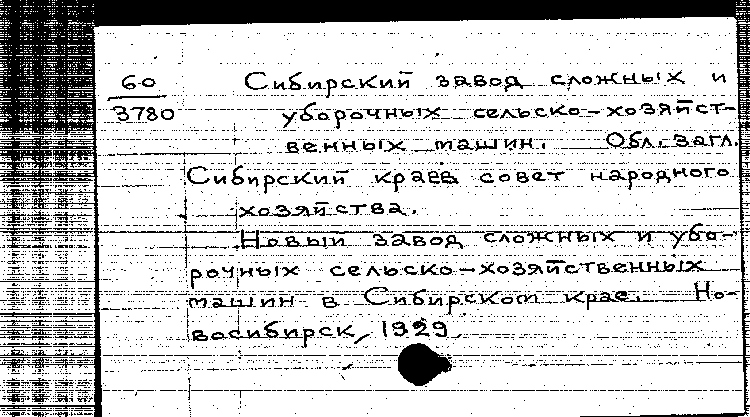 60
3780
Сибирский завод сложных и
уборочных сельско-хозяйст-
венных машин. Обл. загл.
Сибирский краев. совет народного
хозяйства.
Новый завод сложных и убо-
рочных сельско-хозяйственных
машин в Сибирском крае. Но-
восибирск, 1929